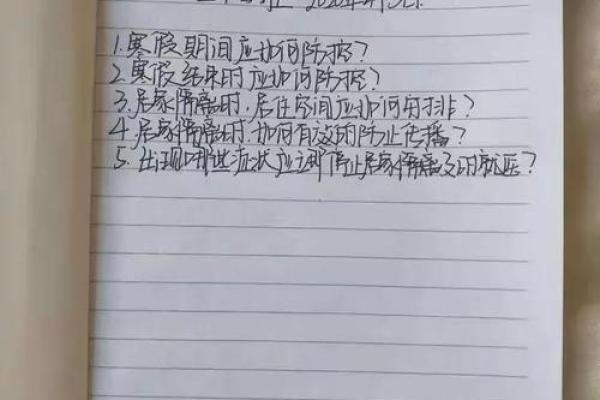 1.寒假期间应如何防控?
2.寒假结束时应如何防控?
3.居家隔离时,居住空间应如何安排?
4.居家隔离时,如何有效的防止传播?
5.出现哪些症状应该停止居家隔离及时就医?